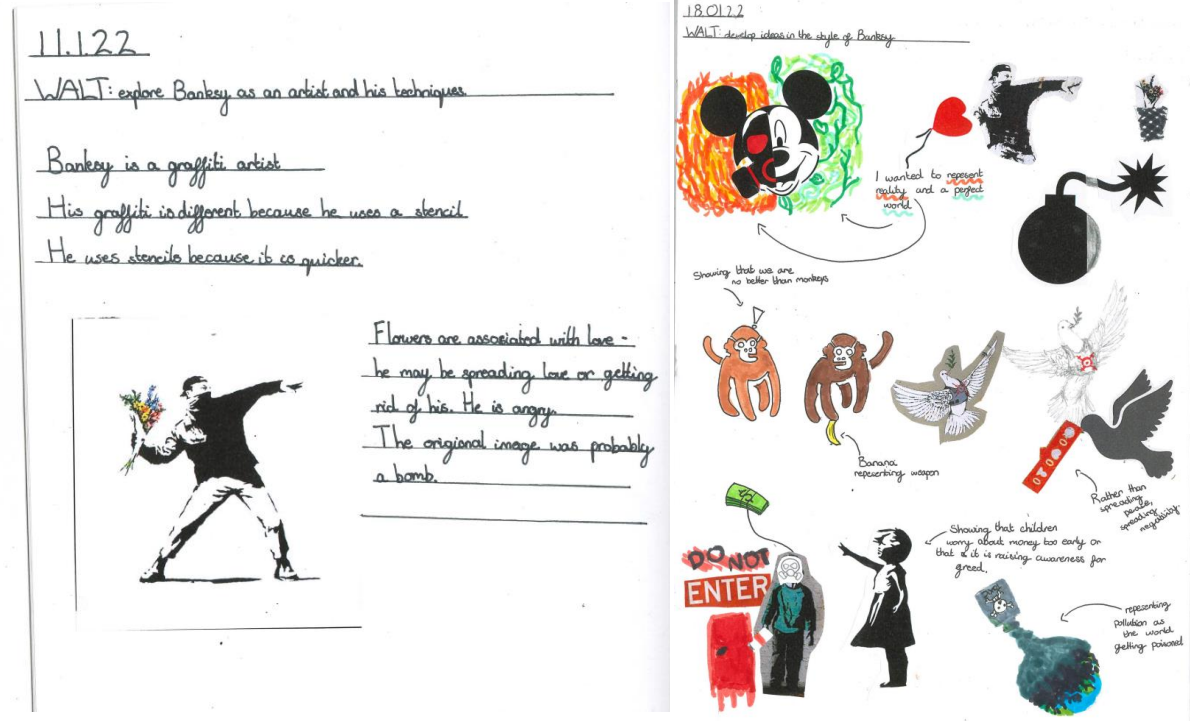 11.1.22
WALT: explore Banksy as an artist and his techniques.
Banksy is a graffiti artist
His graffiti is different because he uses a stencil
He uses stencils because it is quicker.
Flowers are associated with love -
he may be spreading love or getting
rid of his. He is angry.
The origional image was probably
a bomb.
18.01.22
WALT: develop ideas in the style of Banksy
I wanted to repesent
reality and a perfect
world.
Showing that we are
no better than monkeys
Banana
repesenting weapon
Rather than
spreading
peace,
spreading
negativity
DO NOT
ENTER
Showing that children
worry about money too early or
that it is raising awareness for
greed.
repesenting
pollution as
the world
getting poisoned